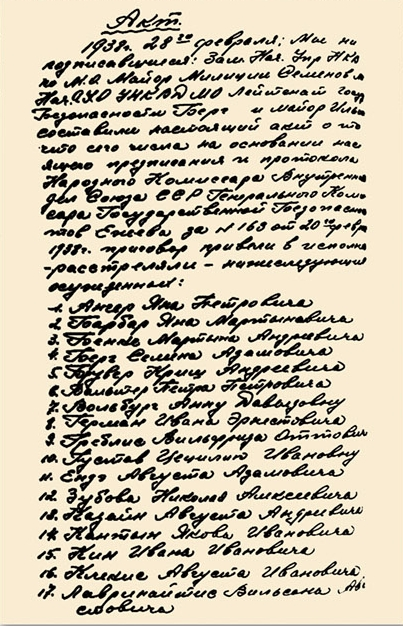 Акт.
1938г. 28го февраля; Мы ни
подписавшиеся: Зам. Нач. Упр НКВ
по М.О. Майор Милиции Семенов и
Нач. АХО УНКВД МО Лейтенант госу
Безопасности Берг и майор Ильи
составили настоящий акт о то
что сего числа на основании нас
ящего предписания и протокола
Народного Комиссара Внутренни
дел Союза ССР Генерального Коми
сара Государственной Безопасн
тов Ежова за №163 от 20го февр
1938г. приговор привели в исполн
-расстреляли - нижеследующих
осужденных:
1. Ансер Яна Петровича
2. Барбар Яна Мартыновича
3. Бенкс Мартына Андреевича
4. Берг Семена Адамовича
5. Брувер Криш Андреевича
6. Вальтер Петра Петровича
7. Вольбург Анну Давыдовну
8. Герман Ивана Эрнестовича
9. Греблис Вильфрида Оттович
10. Густав Цецилию Ивановну
11. Ендз Августа Адамовича
12. Зубова Николая Алексеевича
13. Казайн Августа Андреевича
14. Кантын Якова Ивановича
15. Кин Ивана Ивановича
16. Клекис Августа Ивановича
17. Лавринайтис Вильсона Ав
стовича